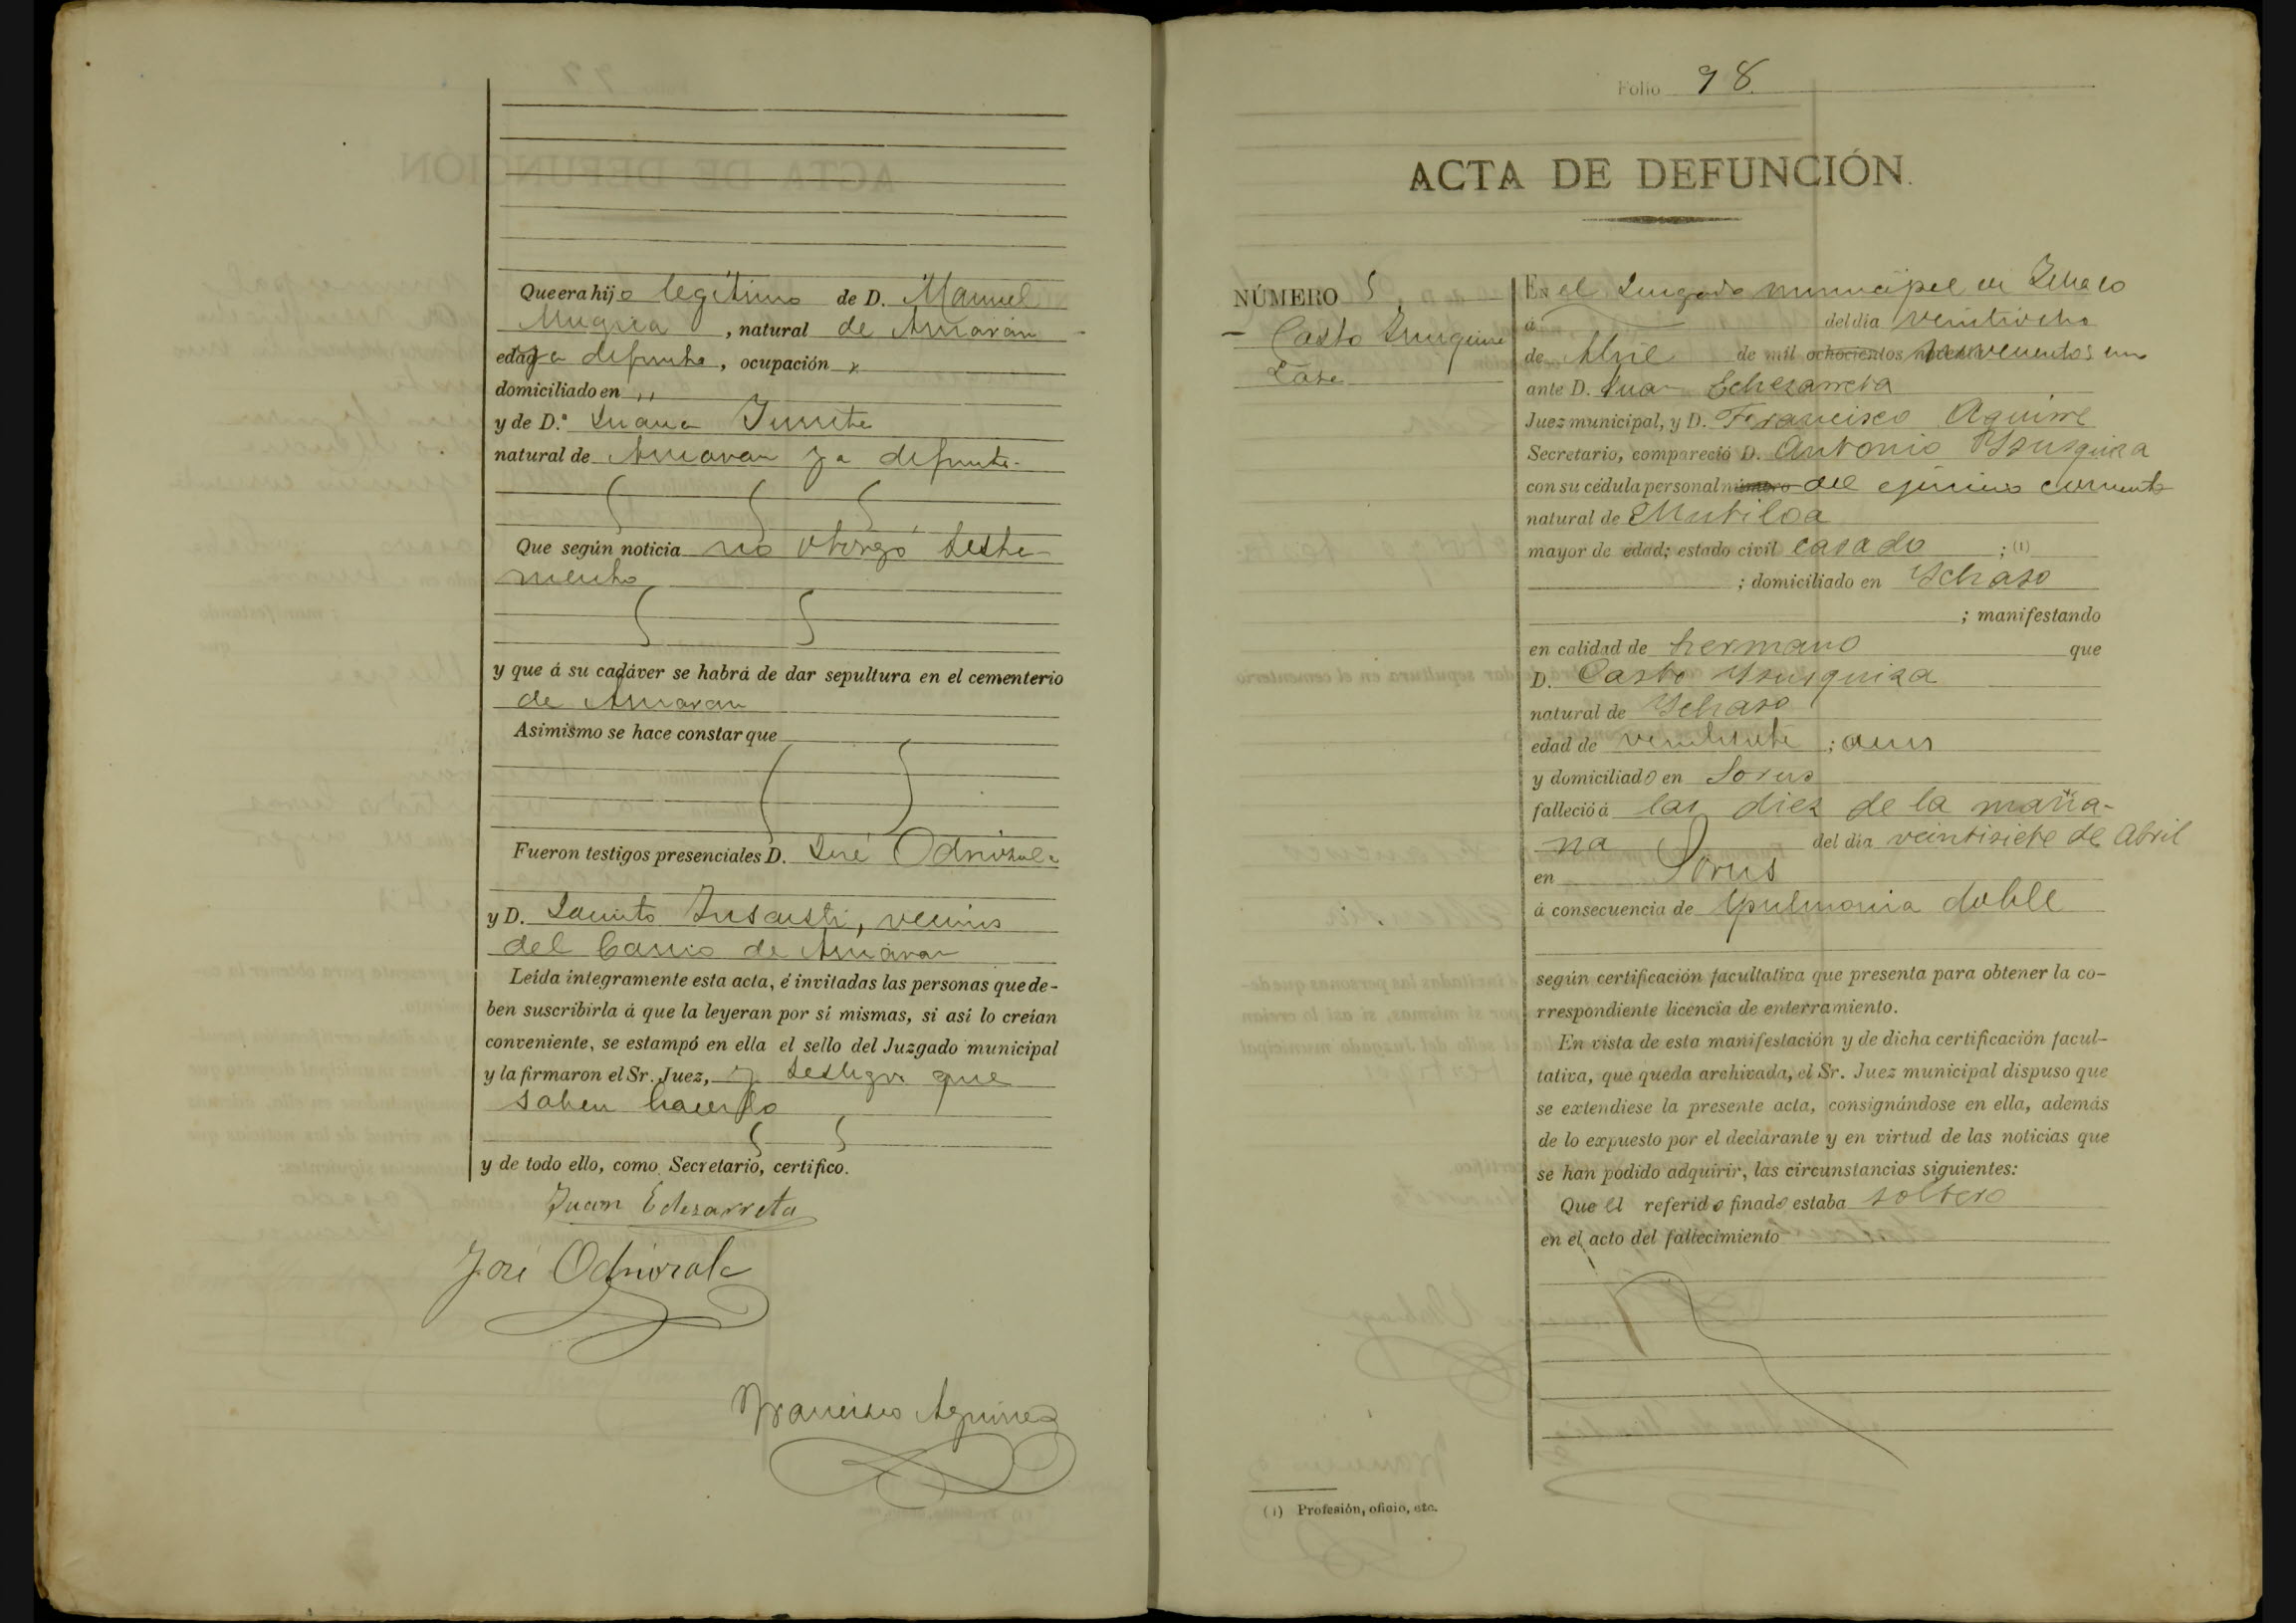 Que era hijo legítimo de D. Manuel
Mugica, natural de Amaran
edad ya defunto, ocupación "
domiciliado en "
y de D.ª Juana Iturrite
natural de Amaran ya defunta.
Que según noticia no otorgó testa-
mento
y que á su cadáver se habrá de dar sepultura en el cementerio
de Amaran
Asimismo se hace constar que
Fueron testigos presenciales D. José Odriozola
y D. Jacinto Insausti, vecinos
del barrio de Amaran
Leída íntegramente esta acta, é invitadas las personas que de-
ben suscribirla á que la leyeran por sí mismas, si así lo creían
conveniente, se estampó en ella el sello del Juzgado municipal
y la firmaron el Sr. Juez, y testigos que
saben hacerlo
y de todo ello, como Secretario, certifico.
Juan Echezarreta
José Odriozola
Francisco Aguirre
Folio 98.
ACTA DE DEFUNCIÓN.
NÚMERO 5
Casto
En el Juzgado municipal de Ichaso
á del día veintiocho
de Abril de mil ochocientos novecientos uno
ante D. Juan Echezarreta
Juez municipal, y D. Francisco Aguirre
Secretario, compareció D. Antonio Ysusquiza
con su cédula personal número del ejercicio corriente
natural de Mutiloa
mayor de edad; estado civil casado ; (1)
; domiciliado en Ychaso
; manifestando
en calidad de hermano que
D. Casto Ysusquiza
natural de Ychaso
edad de ; años
y domiciliado en Sorus
falleció á las diez de la maña-
na del día veintisiete de Abril
en Sorus
á consecuencia de pulmonia doble
según certificación facultativa que presenta para obtener la co-
rrespondiente licencia de enterramiento.
En vista de esta manifestación y de dicha certificación facul-
tativa, que queda archivada, el Sr. Juez municipal dispuso que
se extendiese la presente acta, consignándose en ella, además
de lo expuesto por el declarante y en virtud de las noticias que
se han podido adquirir, las circunstancias siguientes:
Que el referido finado estaba soltero
en el acto del fallecimiento
(1) Profesión, oficio, etc.